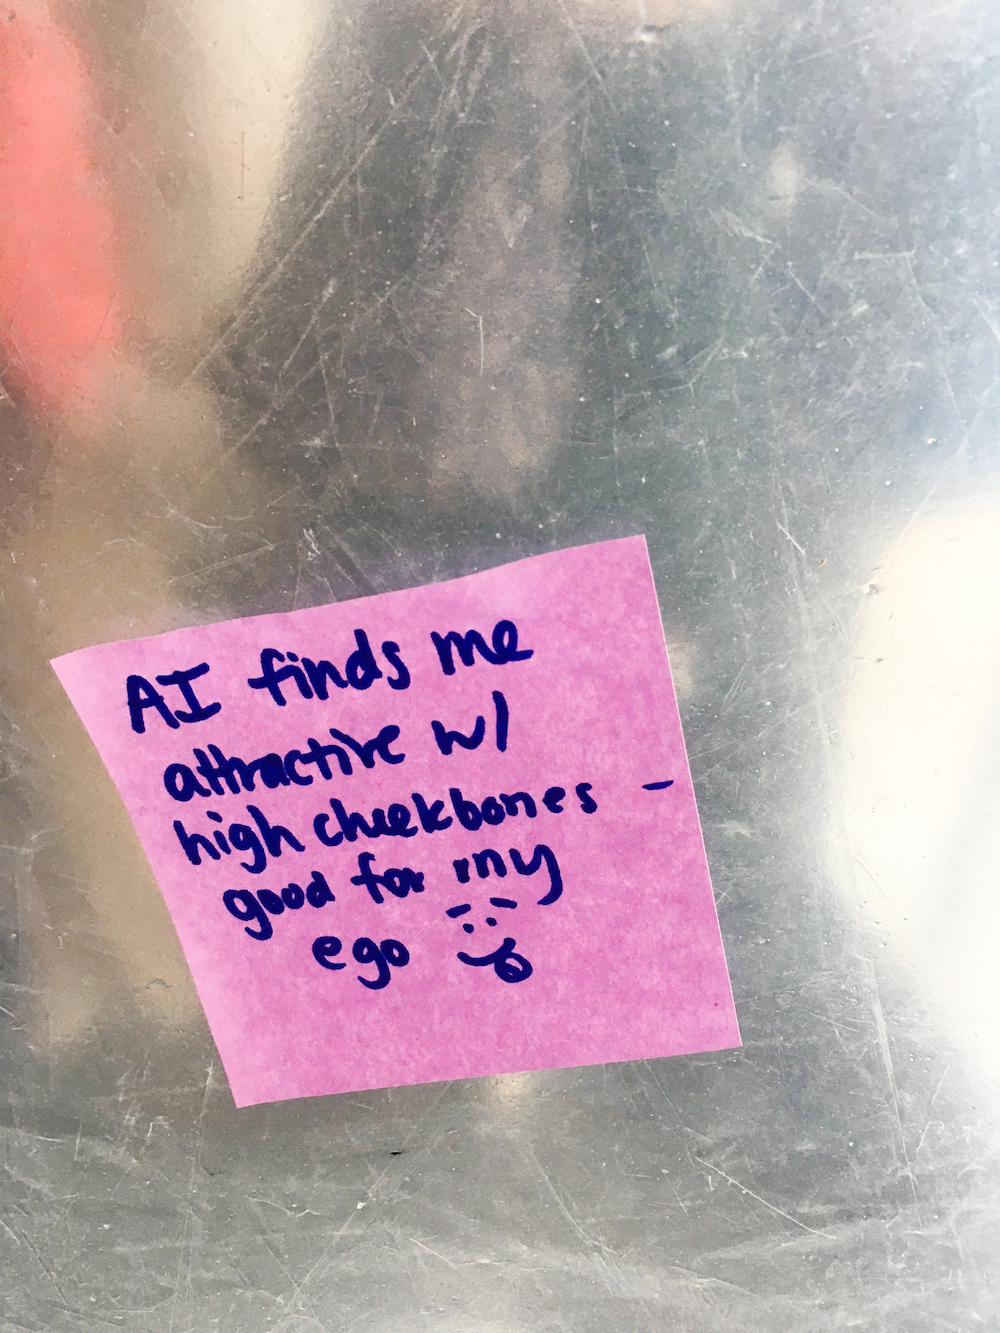 AI finds me
attractive w/
high cheekbones -
good for my
ego